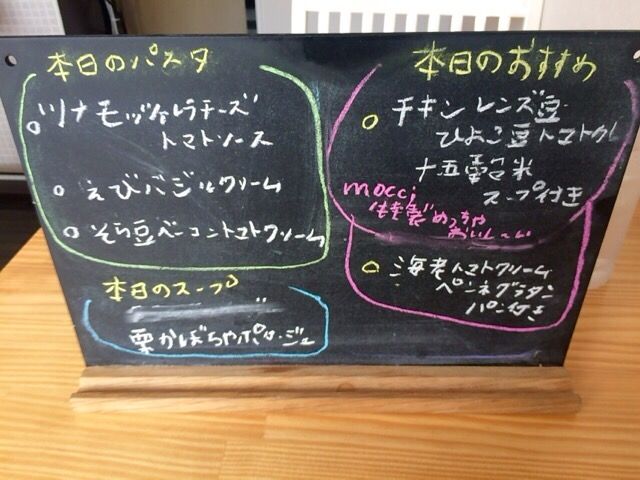 本日のパスタ
ツナモッツァレラチーズ
トマトソース
えびバジルクリーム
そら豆ベーコントマトクリーム
本日のスープ
栗かぼちゃポタージュ
本日のおすすめ
チキンレンズ豆
ひよこ豆トマトクリ
十五雲米
スープ付き
mocci
めっちゃ
おいしーい
海老トマトクリーム
ペンネグラタン
パン付き